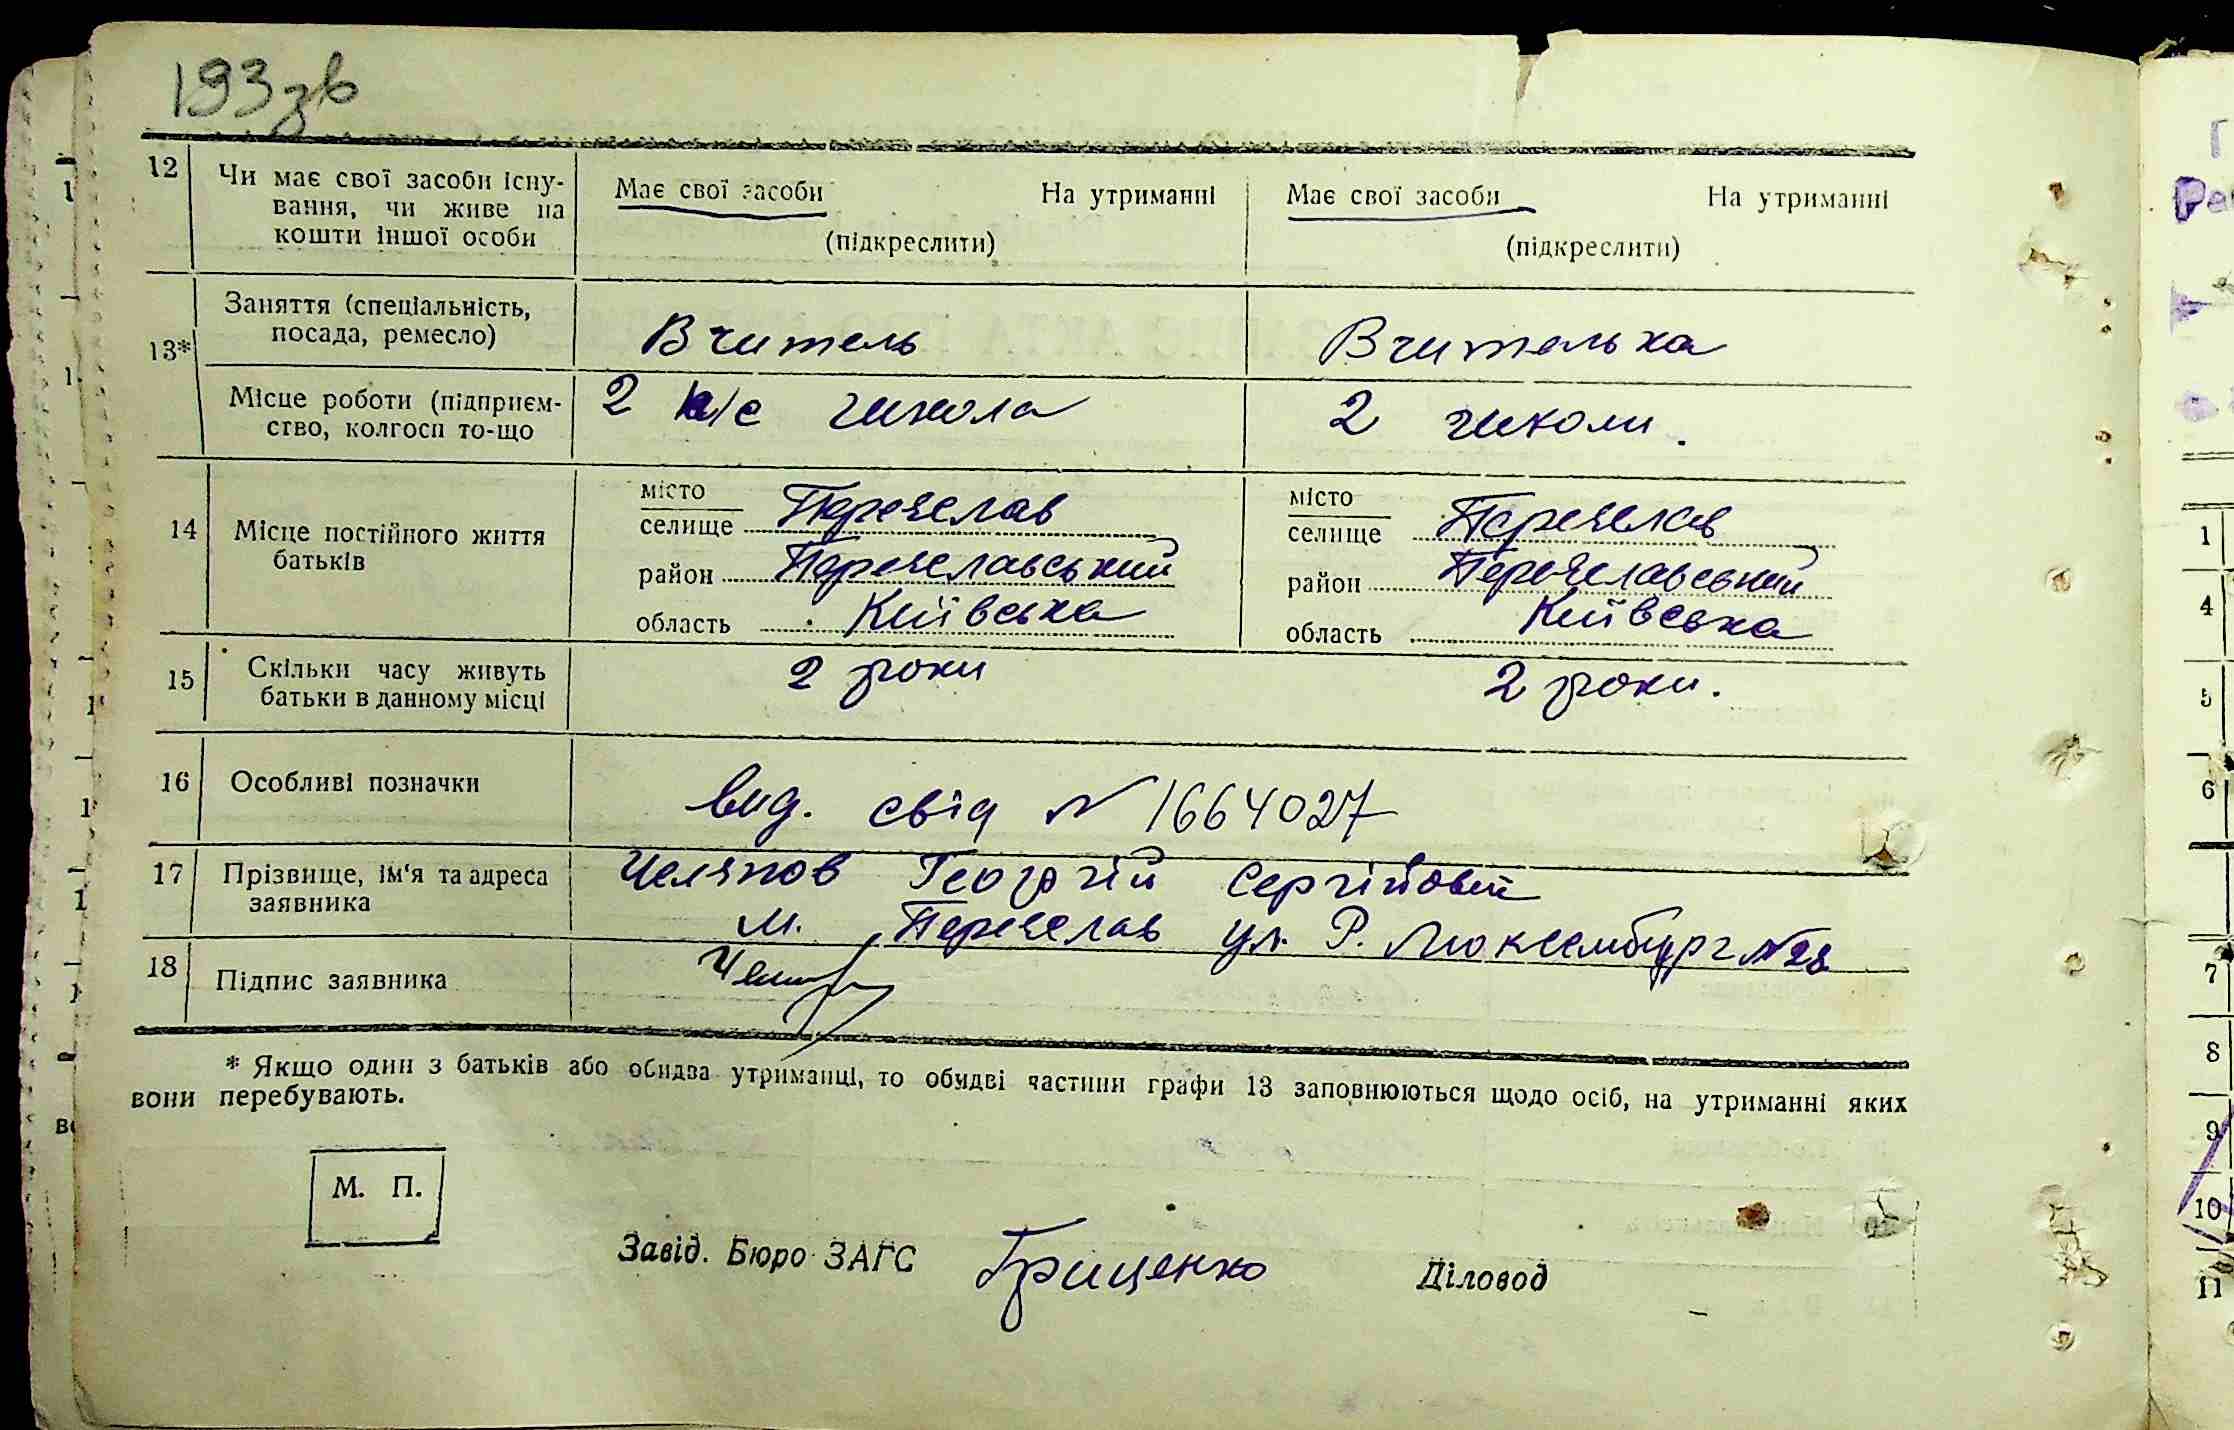 193зв
12 Чи має свої засоби існу-
вання, чи живе на
кошти іншої особи
Має свої засоби На утриманні Має свої засоби На утриманні
(підкреслити) (підкреслити)
13* Заняття (спеціальність,
посада, ремесло)
Вчитель Вчителька
Місце роботи (підприєм-
ство, колгосп то-що
2 н/с школа 2 школи.
14 Місце постійного життя
батьків
місто місто
селище Переяслав селище Переяслав
район Переяславський район Переяславський
область Київська область Київська
15 Скільки часу живуть
батьки в данному місці
2 роки 2 роки.
16 Особливі позначки
вид. свід N 1664027
17 Прізвище, ім'я та адреса
заявника
Челяпов Георгій Сергійович
м. Переяслав ул. Р. Люксембург №28
18 Підпис заявника
* Якщо один з батьків або обидва утриманці, то обидві частини графи 13 заповнюються щодо осіб, на утриманні яких
вони перебувають.
М. П.
Завід. Бюро ЗАГС Гриценко Діловод
1
4
5
6
7
8
9
10
11